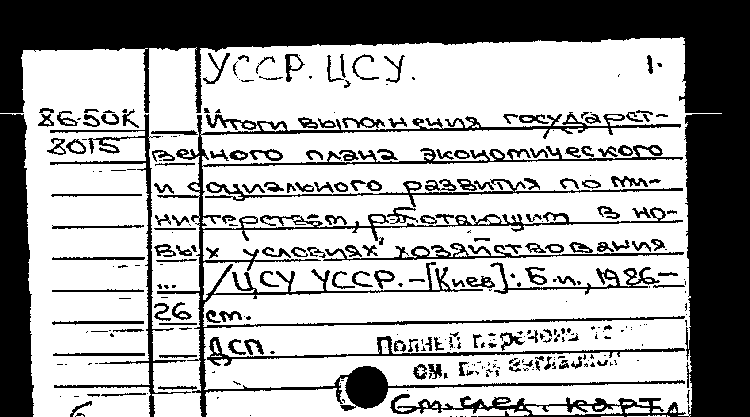 УССР. ЦСУ. 1.
86-50К Итоги выполнения государст-
8015 венного плана экономического
и социального развития по ми-
нистерствам, работающим в но-
вых условиях хозяйствования
... /ЦСУ УССР.-[Киев]: Б.и., 1986-
26 см.
ДСП. Полный перечень
см. под заглавием
См. след. карт.